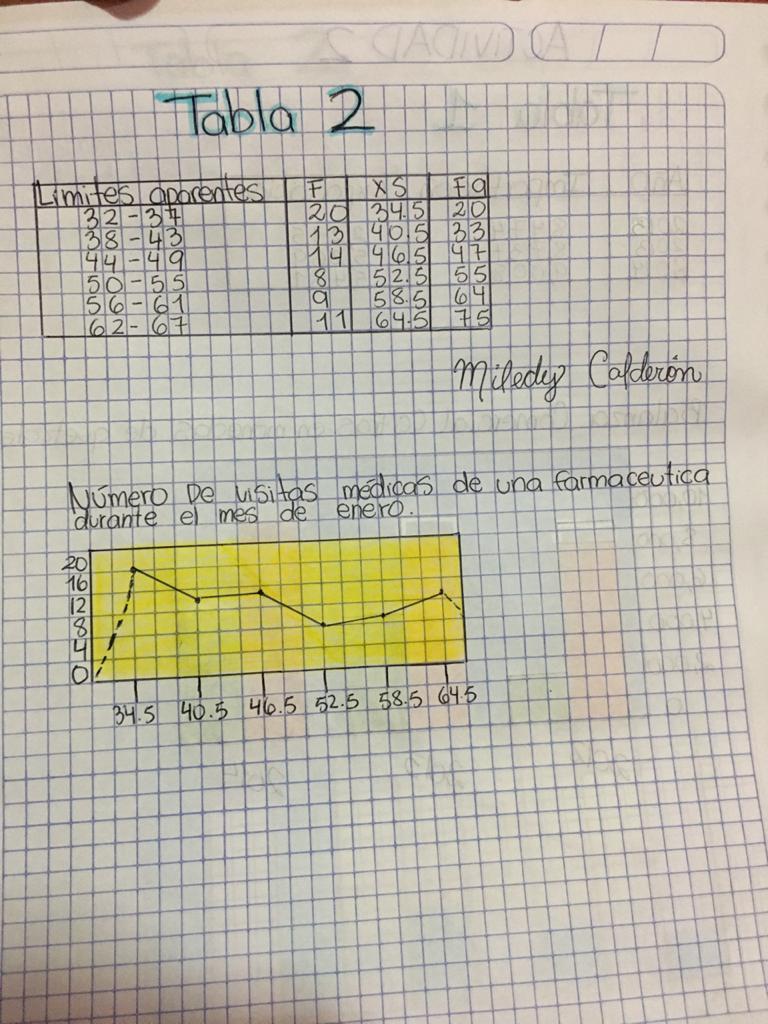 Tabla 2
Límites aparentes F XS Fa
32-37 20 34.5 20
38-43 13 40.5 33
44-49 14 46.5 47
50-55 8 52.5 55
56-61 9 58.5 64
62-67 11 64.5 75
Miledy Calderón
Número De visitas médicas de una farmaceutica
durante el mes de enero.
20
16
12
8
4
0
34.5 40.5 46.5 52.5 58.5 64.5